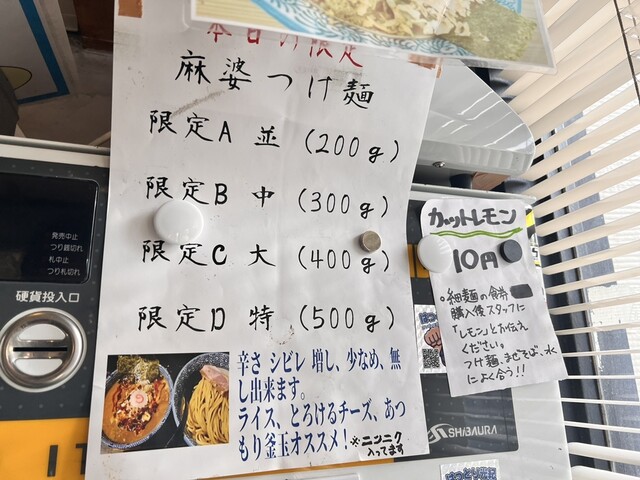 本日の限定
麻婆つけ麺
限定A 並 (200g)
限定B 中 (300g)
限定C 大 (400g)
限定D 特 (500g)
辛さ シビレ 増し、少なめ、無
し出来ます。
ライス、とろけるチーズ、あつ
もり釜玉オススメ！
※ニンニク
入ってます
発売中止
つり銭切れ
札中止
つり札切れ
硬貨投入口
カットレモン
10円
○細麺の食券
購入後スタッフに
「レモン」とお伝え
ください。
つけ麺、まぜそば、水
によく合う!!
SHIBAURA